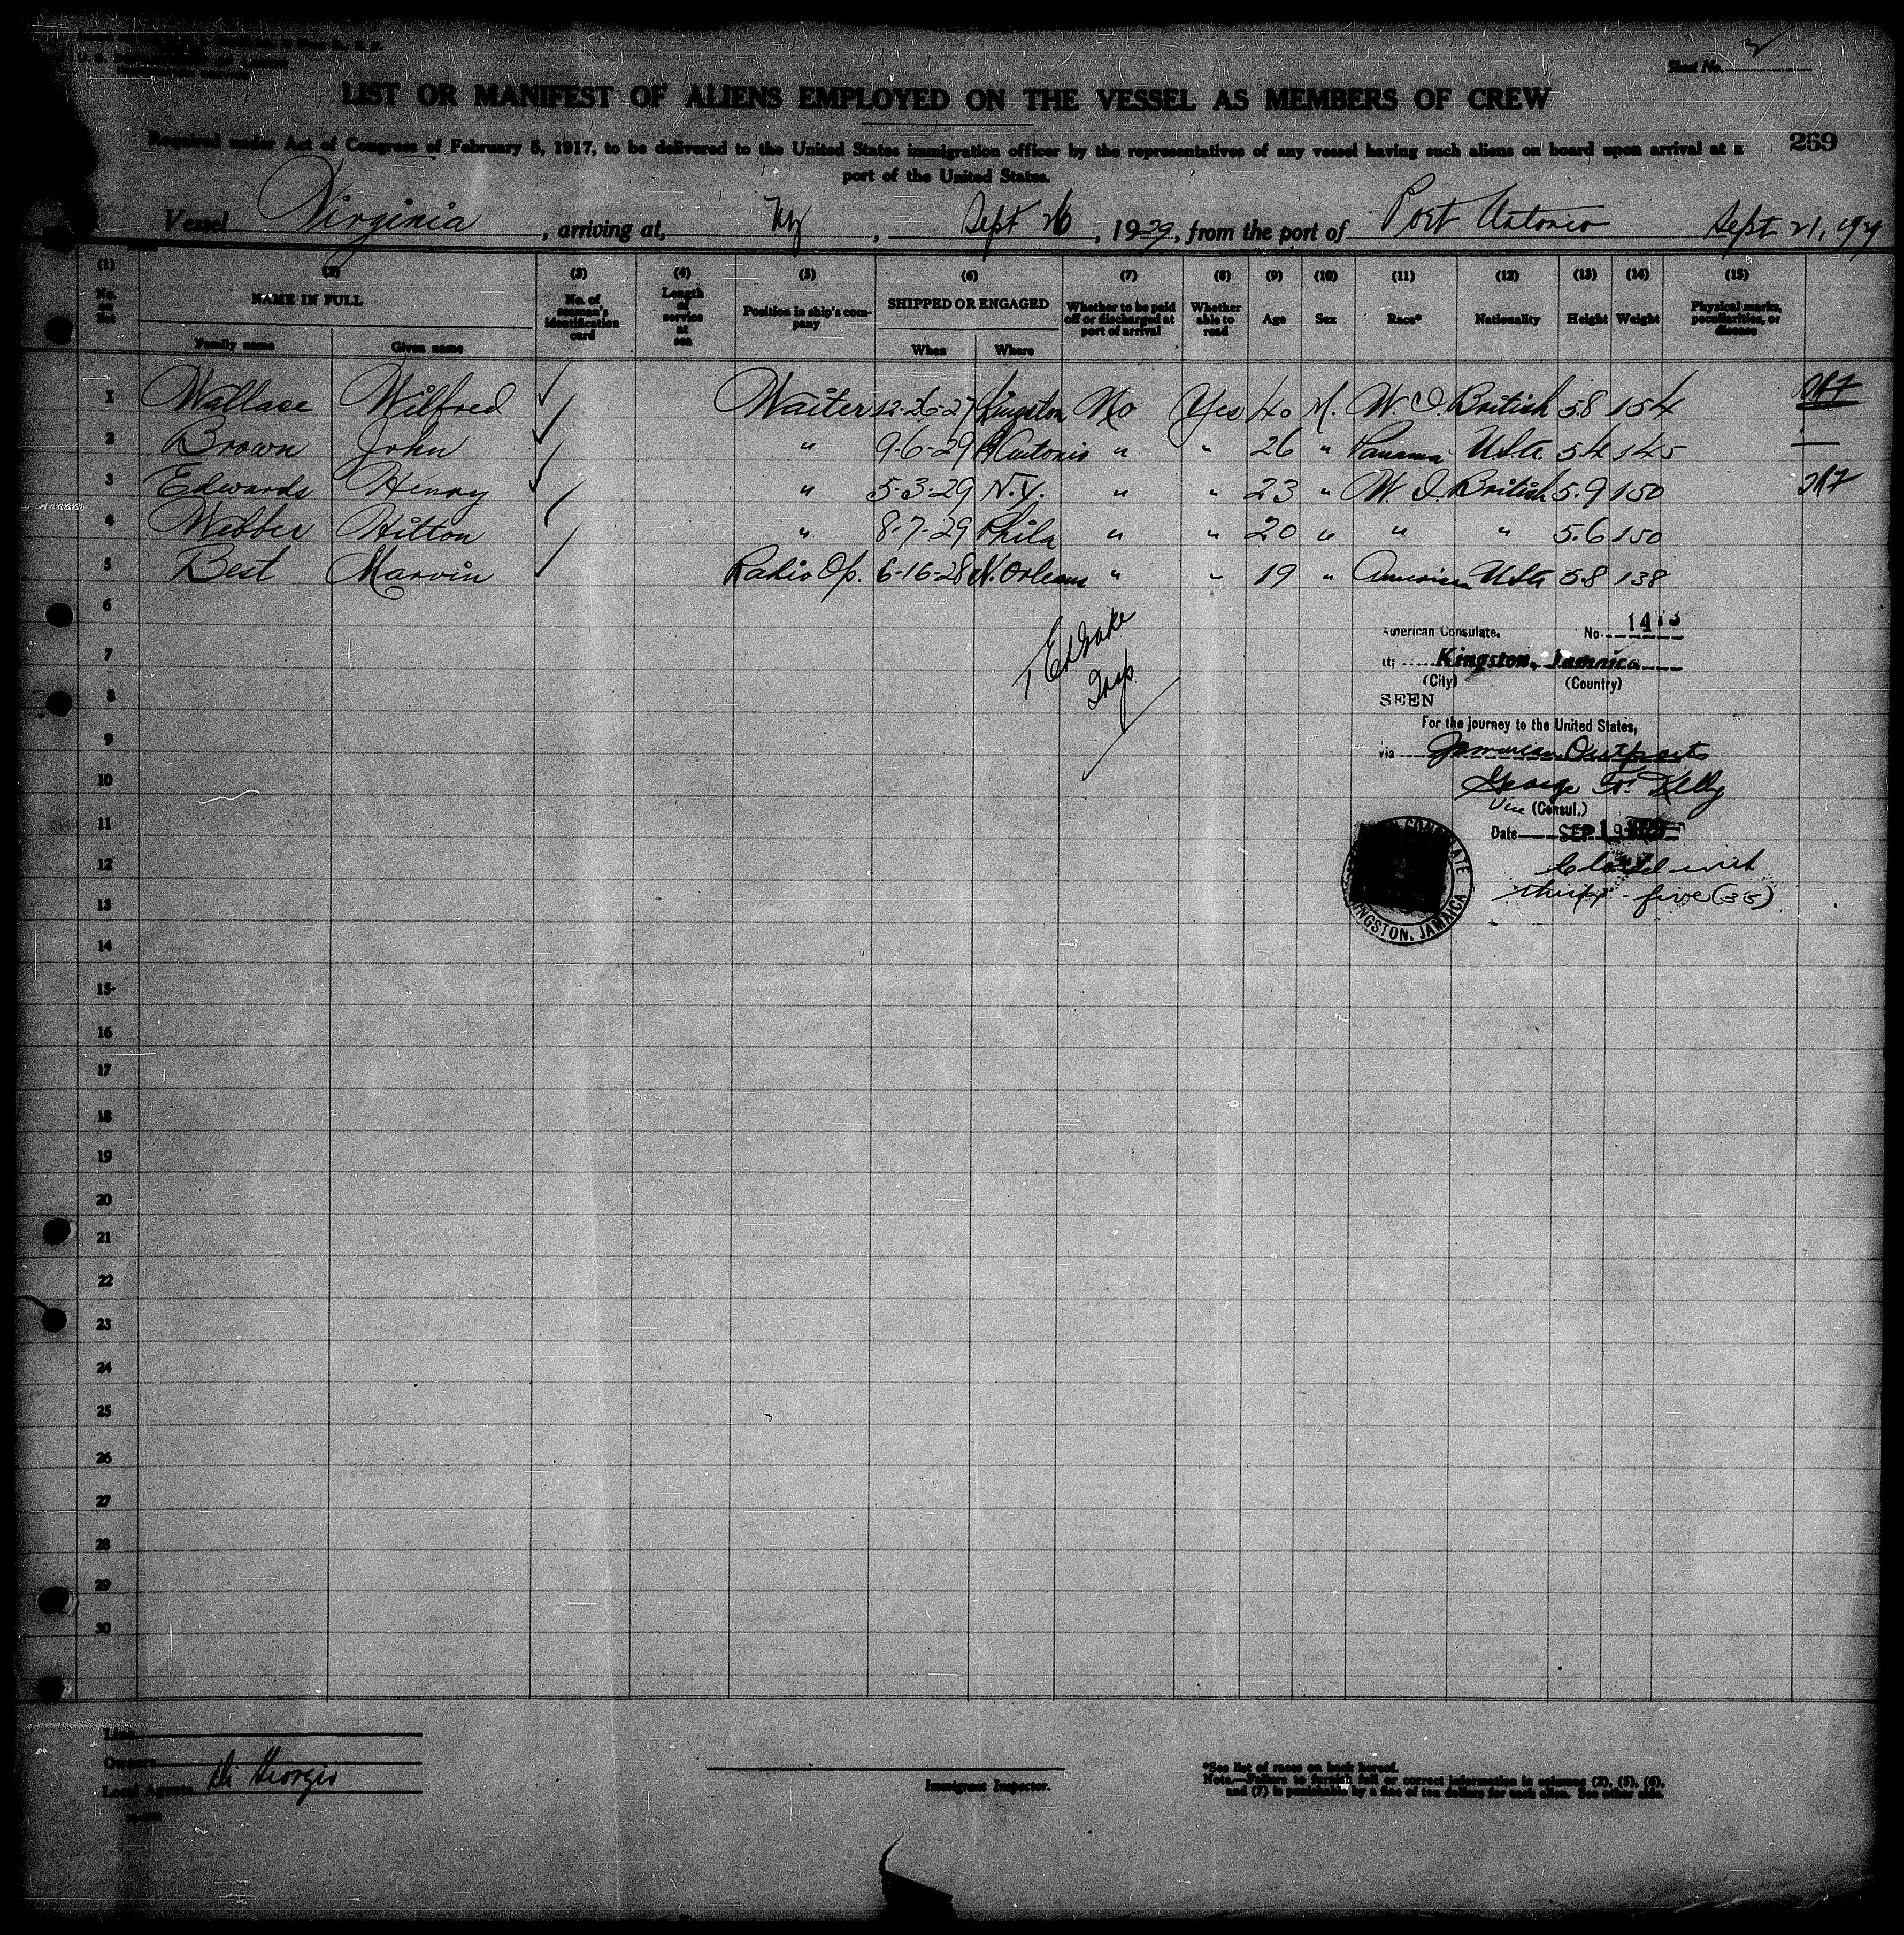 Sheet No. 2
LIST OR MANIFEST OF ALIENS EMPLOYED ON THE VESSEL AS MEMBERS OF CREW
269
Required under Act of Congress of February 5, 1917, to be delivered to the United States immigration officer by the representatives of any vessel having such aliens on board upon arrival at a
port of the United States.
Vessel Virginia, arriving at, NY, Sept 26, 1929, from the port of Port Antonio Sept 21, 1929
(1) (2) (3) (4) (5) (6) (7) (8) (9) (10) (11) (12) (13) (14) (15)
No. on list NAME IN FULL No. of seaman's identification card Length of service at sea Position in ship's company SHIPPED OR ENGAGED Whether to be paid off or discharged at port of arrival Whether able to read Age Sex Race* Nationality Height Weight Physical marks, peculiarities, or disease
Family name Given name When Where
1 Wallace Wilfred ✓ Waiter 12-26-27 Kingston No Yes 40 M. W. I. British 5.8 154
2 Brown John ✓ " 9-6-29 P. Antonio " " 26 " Panama U.S.A. 5.4 145 —
3 Edwards Henry ✓ " 5-3-29 N.Y. " " 23 " W. I. British 5.9 150
4 Webber Hilton ✓ " 8-7-29 Phila " " 20 " " " 5.6 150
5 Best Marvin ✓ Radio Op. 6-16-28 N. Orleans " " 19 " American U.S.A. 5.8 138
6
7
8
9
10
11
12
13
14
15
16
17
18
19
20
21
22
23
24
25
26
27
28
29
30
E Drake
Insp
American Consulate. No. 1413
at Kingston, Jamaica
(City) (Country)
SEEN
For the journey to the United States,
via Jamaican Outports
George F. Kelly
Vice (Consul.)
Date SEP 19 1929
KINGSTON, JAMAICA
Closed with
thirty-five (35)
Line
Owners
Local Agents Di Giorgio
Immigrant Inspector.
*See list of races on back hereof.
Note.—Failure to furnish full or correct information in columns (2), (5), (6),
and (7) is punishable by a fine of ten dollars for each alien. See other side.